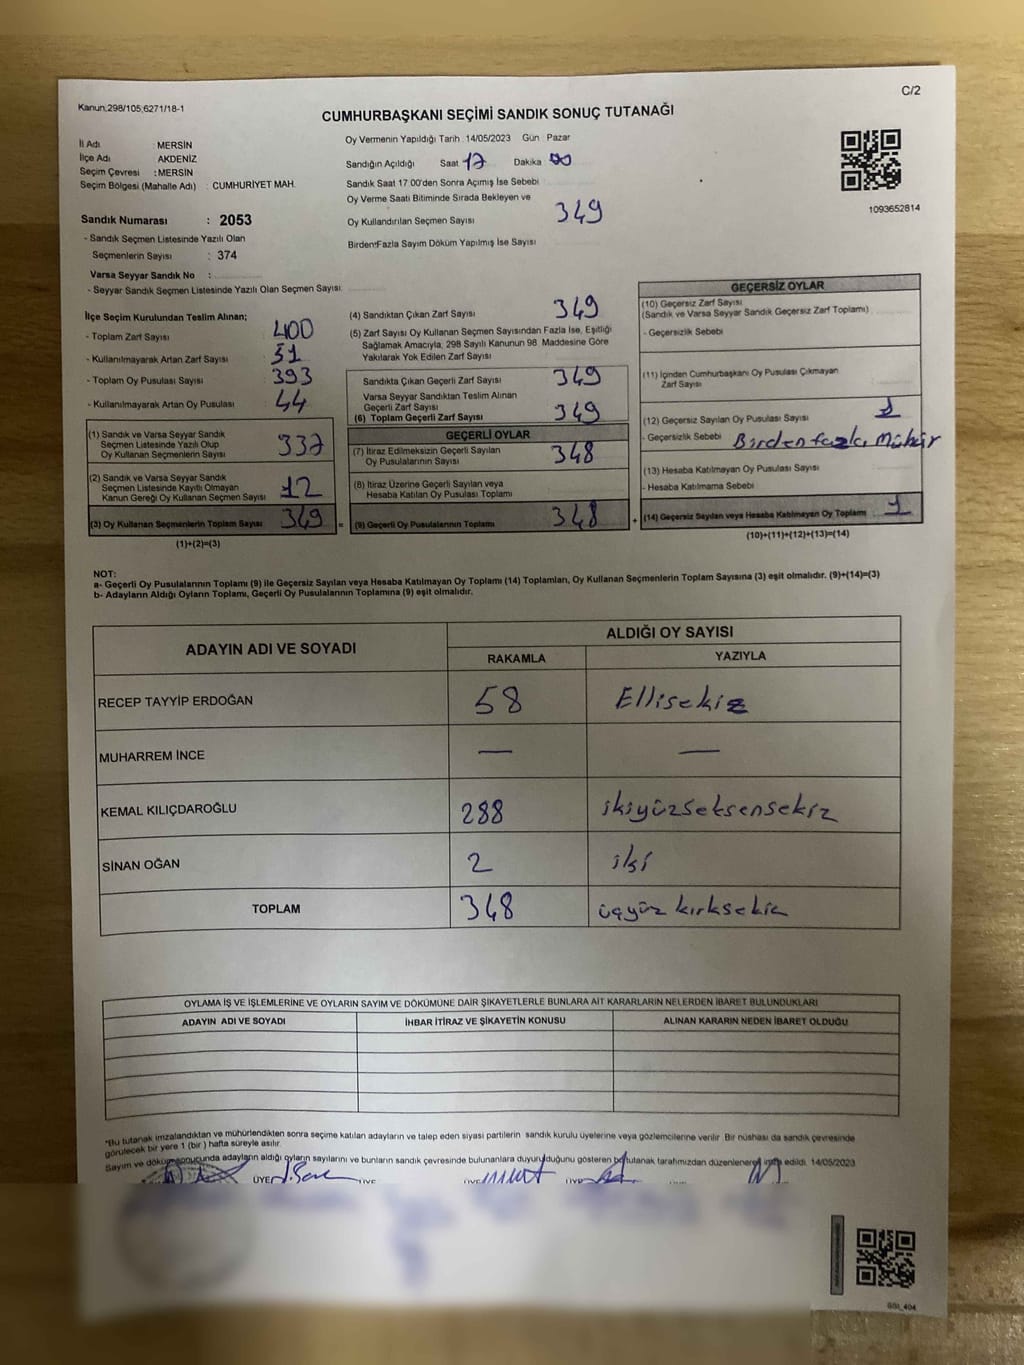 Kanun;298/105;6271/18-1
C/2
CUMHURBAŞKANI SEÇİMİ SANDIK SONUÇ TUTANAĞI
İl Adı MERSİN
İlçe Adı AKDENİZ
Seçim Çevresi : MERSİN
Seçim Bölgesi (Mahalle Adı) : CUMHURİYET MAH.
Sandık Numarası : 2053
- Sandık Seçmen Listesinde Yazılı Olan
Seçmenlerin Sayısı : 374
Varsa Seyyar Sandık No :
- Seyyar Sandık Seçmen Listesinde Yazılı Olan Seçmen Sayısı:
Oy Vermenin Yapıldığı Tarih 14/05/2023 Gün Pazar
Sandığın Açıldığı Saat 17 Dakika 00
Sandık Saat 17:00'den Sonra Açımış İse Sebebi
Oy Verme Saati Bitiminde Sırada Bekleyen ve
Oy Kullandırılan Seçmen Sayısı 349
Birden Fazla Sayım Döküm Yapılmış İse Sayısı
1093652814
İlçe Seçim Kurulundan Teslim Alınan;
- Toplam Zarf Sayısı 400
- Kullanılmayarak Artan Zarf Sayısı 51
- Toplam Oy Pusulası Sayısı 393
- Kullanılmayarak Artan Oy Pusulası 44
(1) Sandık ve Varsa Seyyar Sandık
Seçmen Listesinde Yazılı Olup
Oy Kullanan Seçmenlerin Sayısı 337
(2) Sandık ve Varsa Seyyar Sandık
Seçmen Listesinde Kayıtlı Olmayan
Kanun Gereği Oy Kullanan Seçmen Sayısı 12
(3) Oy Kullanan Seçmenlerin Toplam Sayısı 349 =
(1)+(2)=(3)
(4) Sandıktan Çıkan Zarf Sayısı 349
(5) Zarf Sayısı Oy Kullanan Seçmen Sayısından Fazla İse, Eşitliği
Sağlamak Amacıyla, 298 Sayılı Kanunun 98. Maddesine Göre
Yakılarak Yok Edilen Zarf Sayısı
Sandıkta Çıkan Geçerli Zarf Sayısı 349
Varsa Seyyar Sandıktan Teslim Alınan
Geçerli Zarf Sayısı
(6) Toplam Geçerli Zarf Sayısı 349
GEÇERLİ OYLAR
(7) İtiraz Edilmeksizin Geçerli Sayılan
Oy Pusulalarının Sayısı 348
(8) İtiraz Üzerine Geçerli Sayılan veya
Hesaba Katılan Oy Pusulası Toplamı
(9) Geçerli Oy Pusulalarının Toplamı 348 +
GEÇERSİZ OYLAR
(10) Geçersiz Zarf Sayısı
(Sandık ve Varsa Seyyar Sandık Geçersiz Zarf Toplamı)
- Geçersizlik Sebebi
(11) İçinden Cumhurbaşkanı Oy Pusulası Çıkmayan
Zarf Sayısı
(12) Geçersiz Sayılan Oy Pusulası Sayısı 1
- Geçersizlik Sebebi Birden fazla Mühür
(13) Hesaba Katılmayan Oy Pusulası Sayısı
- Hesaba Katılmama Sebebi
(14) Geçersiz Sayılan veya Hesaba Katılmayan Oy Toplamı 1
(10)+(11)+(12)+(13)=(14)
NOT:
a- Geçerli Oy Pusulalarının Toplamı (9) ile Geçersiz Sayılan veya Hesaba Katılmayan Oy Toplamı (14) Toplamları, Oy Kullanan Seçmenlerin Toplam Sayısına (3) eşit olmalıdır. (9)+(14)=(3)
b- Adayların Aldığı Oyların Toplamı, Geçerli Oy Pusulalarının Toplamına (9) eşit olmalıdır.
ADAYIN ADI VE SOYADI
ALDIĞI OY SAYISI
RAKAMLA YAZIYLA
RECEP TAYYİP ERDOĞAN 58 Ellisekiz
MUHARREM İNCE — —
KEMAL KILIÇDAROĞLU 288 ikiyüzseksensekiz
SİNAN OĞAN 2 iki
TOPLAM 348 üçyüz kırksekiz
OYLAMA İŞ VE İŞLEMLERİNE VE OYLARIN SAYIM VE DÖKÜMÜNE DAİR ŞİKAYETLERLE BUNLARA AİT KARARLARIN NELERDEN İBARET BULUNDUKLARI
ADAYIN ADI VE SOYADI İHBAR İTİRAZ VE ŞİKAYETİN KONUSU ALINAN KARARIN NEDEN İBARET OLDUĞU
*Bu tutanak imzalandıktan ve mühürlendikten sonra seçime katılan adayların ve talep eden siyasi partilerin sandık kurulu üyelerine veya gözlemcilerine verilir. Bir nüshası da sandık çevresinde
görülecek bir yere 1 (bir ) hafta süreyle asılır.
Sayım ve döküm sonucunda adayların aldığı oyların sayılarını ve bunların sandık çevresinde bulunanlara duyurulduğunu gösteren bu tutanak tarafımızdan düzenlenerek imza edildi. 14/05/2023
ÜYE ÜYE ÜYE ÜYE